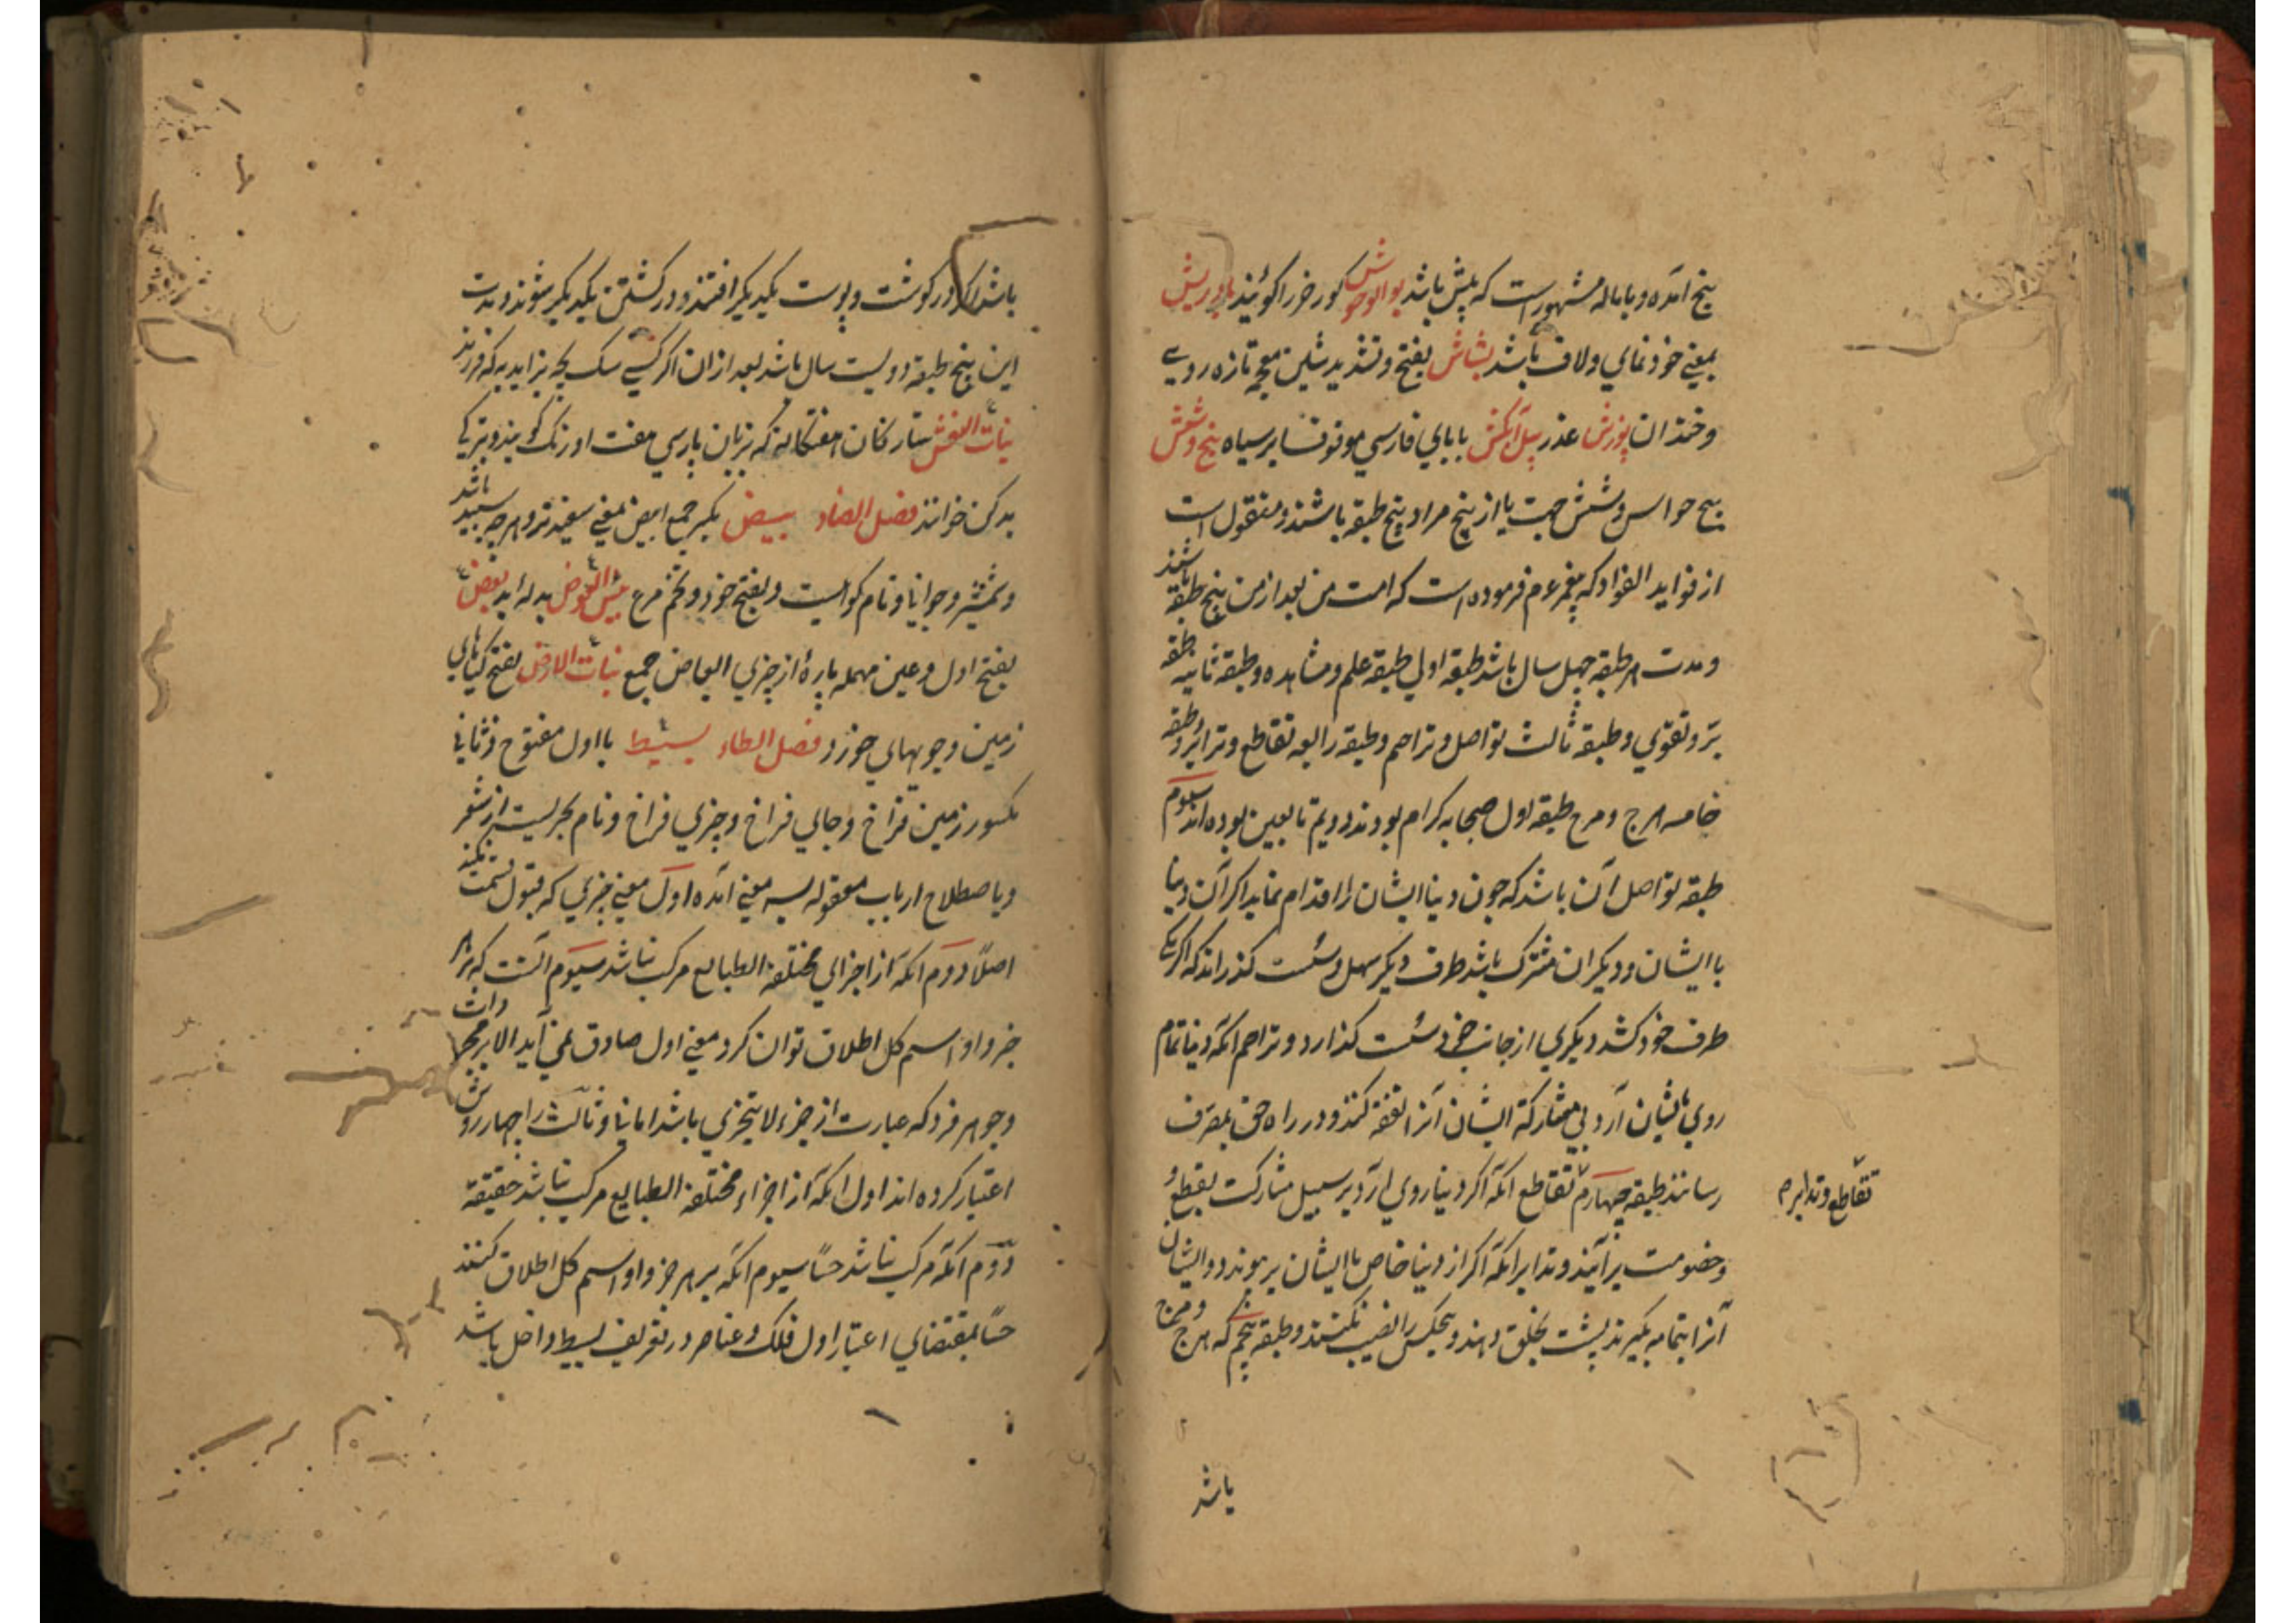 بیخ آمده و با باله مشهور است که پیش باشد بوالوحوش کور خر را کویند بادریش
بمعنی خودنمای و لاف باشد بشاش بفتح و تشدید شین معجمه تازه روی
و خندان پوزش عذر پیل آبکش بابای فارسی موقوف ابر سیاه پنج و شش
پنج حواس و شش جهت یا از پنج مراد پنج طبقه باشند و منقول است
از فواید الفواد که پیغمبر عم فرموده است که امت من بعد از من پنج طبقه باشند
و مدت هر طبقه چهل سال باشد طبقه اولی طبقه علم و مشاهده و طبقه ثانیه طبقه
برّ و تقوی و طبقه ثالث تواصل و تراحم و طبقه رابعه تقاطع و تدابر و طبقه
خامسه هرج و مرج طبقه اول صحابه کرام بودند دویم تابعین بوده اند سیوم
طبقه تواصل آن باشد که چون دنیا ایشان را اقدام نماید اکر آن دنیا
با ایشان و دیکران مشترک باشد طرف دیکر سهل و سست کذرانند که اکر یکی
طرف خود کشد دیکری از جانب خود سست کذارد و تراحم آنکه دنیا تمام
روی بایشان آرد بی مشارکة ایشان آنرا نفقه کنند و در راه حق بمصرف
رسانند طبقه چهارم تقاطع آنکه اکر دنیا روی آرد بر سبیل مشارکت بقطع و
تقاطع و تدابر م
و خصومت برآیند و تدابر آنکه اکر از دنیا خاص با ایشان پیوندد و ایشان
آنرا بتمامه بکیرند پشت بخلق دهند و هیچکس را نصیب نکنند و طبقه پنجم که هرج و مرج
باشد
باشد در کوشت و پوست یکدیکر افتند و در کشتن یکدیکر شوند و مدت
این پنج طبقه دویست سال باشد بعد از آن اکر کسی سک بچه بزاید به که فرزند
بنات النعش ستارکان هفتکانه که بزبان پارسی هفت اورنک کویند و بترکی
یدکن خوانند فصل الضاد بیض بکسر جمع ابیض بمعنی سفیدتر و هرچه سپید باشد
و شمشیر و جوانیا و نام کواست و بفتح خود و تخم مرغ بئس العوض بد له اید بعض
بفتح اول و عین مهمله پارۀ از چیزی ابعاض جمع نبات الارض بفتح کیاهای
زمین و جویهای خورد فصل الطاء بسیط با اول مفتوح و ثانی
مکسور زمین فراخ و جای فراخ و چیزی فراخ و نام بحریست از شعر
و باصطلاح ارباب معقول بسه معنی آمده اول معنی چیزی که قبول قسمت نکند
اصلاً دوم آنکه از اجزای مختلفة الطبایع مرکب نباشد سیوم آنست که بر هر
جزو او اسم کل اطلاق توان کرد معنی اول صادق نمی آید الا بر مجردات
و جوهر فرد که عبارت از جزء لایتجزی باشد اما ثانی و ثالث را چهار روش
اعتبار کرده اند اول آنکه از اجزاء مختلفة الطبایع مرکب نباشد حقیقة
دوم آنکه مرکب نباشد حسّاً سیوم آنکه بر هر جزو او اسم کل اطلاق کنند
حسّاً بمقتضای اعتبار اول فلک و عناصر در تعریف بسیط داخل باشد